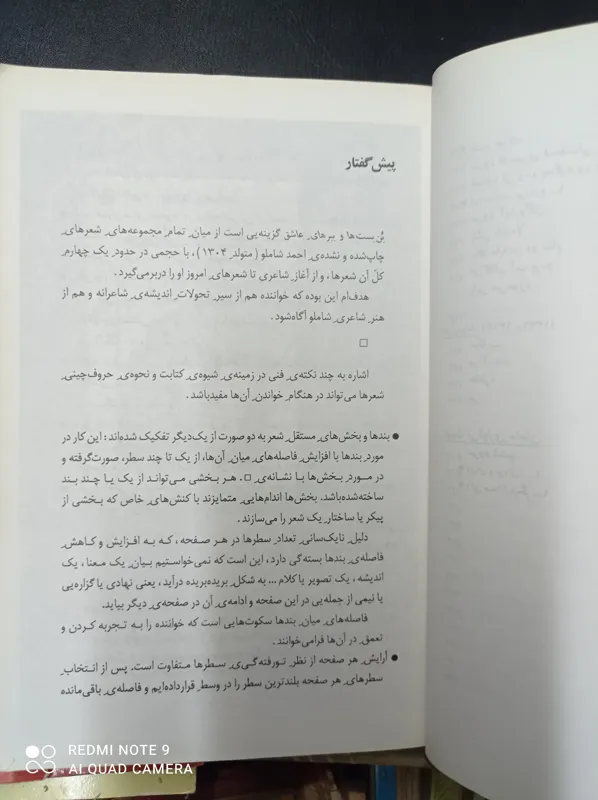 پیش‌گفتار
بُن‌بست‌ها و ببرهایِ عاشق گزینه‌یی است از میان‌ِ تمام‌ِ مجموعه‌های‌ِ شعرهای‌ِ
چاپ‌شده و نشده‌ی‌ِ احمد شاملو (متولد ۱۳۰۴)، با حجمی در حدود‌ِ یک چهارم‌ِ
کل‌ِ آن شعرها، و از آغاز‌ِ شاعری تا شعرهای‌ِ امروز‌ِ او را دربرمی‌گیرد.
هدف‌ام این بوده که خواننده هم از سیر‌ِ تحولات‌ِ اندیشه‌ی‌ِ شاعرانه و هم از
هنر‌ِ شاعری‌ِ شاملو آگاه‌شود.
□
اشاره به چند نکته‌ی‌ِ فنی در زمینه‌ی‌ِ شیوه‌ی‌ِ کتابت و نحوه‌ی‌ِ حروف‌چینی‌ِ
شعرها می‌تواند در هنگام‌ِ خواندن‌ِ آن‌ها مفیدباشد.
● بندها و بخش‌های‌ِ مستقل‌ِ شعر به دو صورت از یک‌دیگر تفکیک شده‌اند: این کار در
مورد‌ِ بندها با افزایش‌ِ فاصله‌های‌ِ میان‌ِ آن‌ها، از یک تا چند سطر، صورت‌گرفته و
در مورد‌ِ بخش‌ها با نشانه‌ی‌ِ □. هر بخشی می‌تواند از یک یا چند بند
ساخته‌شده‌باشد. بخش‌ها اندام‌هایی متمایزند با کنش‌های‌ِ خاص که بخشی از
پیکر یا ساختار‌ِ یک شعر را می‌سازند.
دلیل‌ِ نایک‌سانی‌ِ تعداد‌ِ سطرها در هر صفحه، که به افزایش و کاهش‌ِ
فاصله‌ی‌ِ بندها بسته‌گی دارد، این است که نمی‌خواستیم بیان‌ِ یک معنا، یک
اندیشه، یک تصویر یا کلام ... به شکل‌ِ بریده‌بریده درآید، یعنی نهادی یا گزاره‌یی
یا نیمی از جمله‌یی در این صفحه و ادامه‌ی‌ِ آن در صفحه‌ی‌ِ دیگر بیاید.
فاصله‌های‌ِ میان‌ِ بندها سکوت‌هایی است که خواننده را به تجربه کردن و
تعمق‌ِ در آن‌ها فرامی‌خوانند.
● آرایش‌ِ هر صفحه از نظر‌ِ تورفته‌گی‌ی‌ِ سطرها متفاوت است. پس از انتخاب‌ِ
سطرهای‌ِ هر صفحه بلندترین سطر را در وسط قرارداده‌ایم و فاصله‌ی‌ِ باقی‌مانده
REDMI NOTE 9
AI QUAD CAMERA